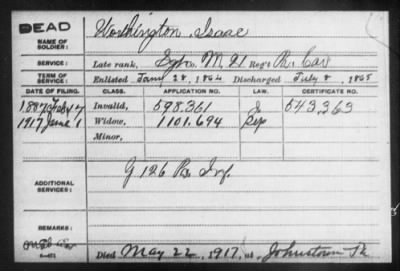 DEAD
NAME OF SOLDIER: Worthington, Isaac
SERVICE: Late rank, Co. M, 21 Reg't Pa. Cav
TERM OF SERVICE: Enlisted Jany 28, 1864 Discharged July 8, 1865
DATE OF FILING. CLASS. APPLICATION NO. LAW. CERTIFICATE NO.
1887 Feb 17 Invalid, 598.361 543.363
1917 June 1 Widow, 1101.694 Sep
Minor,
ADDITIONAL SERVICES: G 126 Pa. Inf.
REMARKS:
Died May 22, 1917, at Johnstown Pa